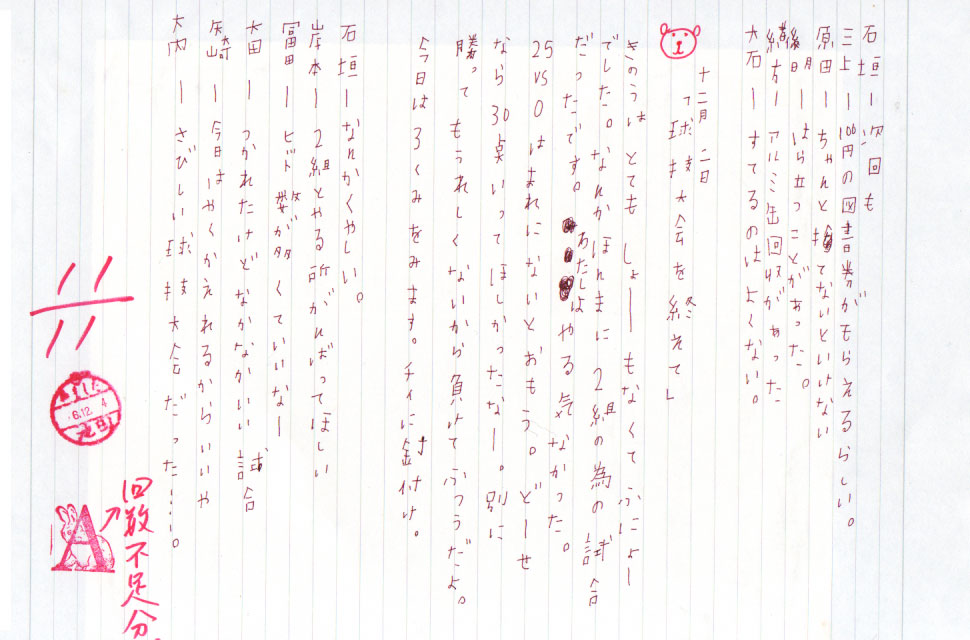 石垣ー次回も
三上ー100円の図書券がもらえるらしい。
原田ーちゃんと捨てないといけない
後明ーはら立つことがあった。
緒方ーアルミ缶回収があった
大石ーすてるのはよくない。
十二月二日
「球技大会を終えて」
きのうはとてもしょーーもなくてふにょー
でした。なんかほんまに2組の為の試合
だったです。あたしはやる気なかった。
25vs0はまれにないとおもう。どーせ
なら30点いってほしかったなー。別に
勝ってもうれしくないから負けてふつうだよ。
今日は3くみをみます。チィに釘付け。
石垣ーなんかくやしい。
岸本ー2組とやる所がんばってほしい
冨田ーヒット数が多くていいなー
太田ーつかれたけどなかなかいい試合
矢崎ー今日はやくかえれるからいいや
大内ーさびしい球技大会だった……。
11/11
6.12.4
A
回数不足分